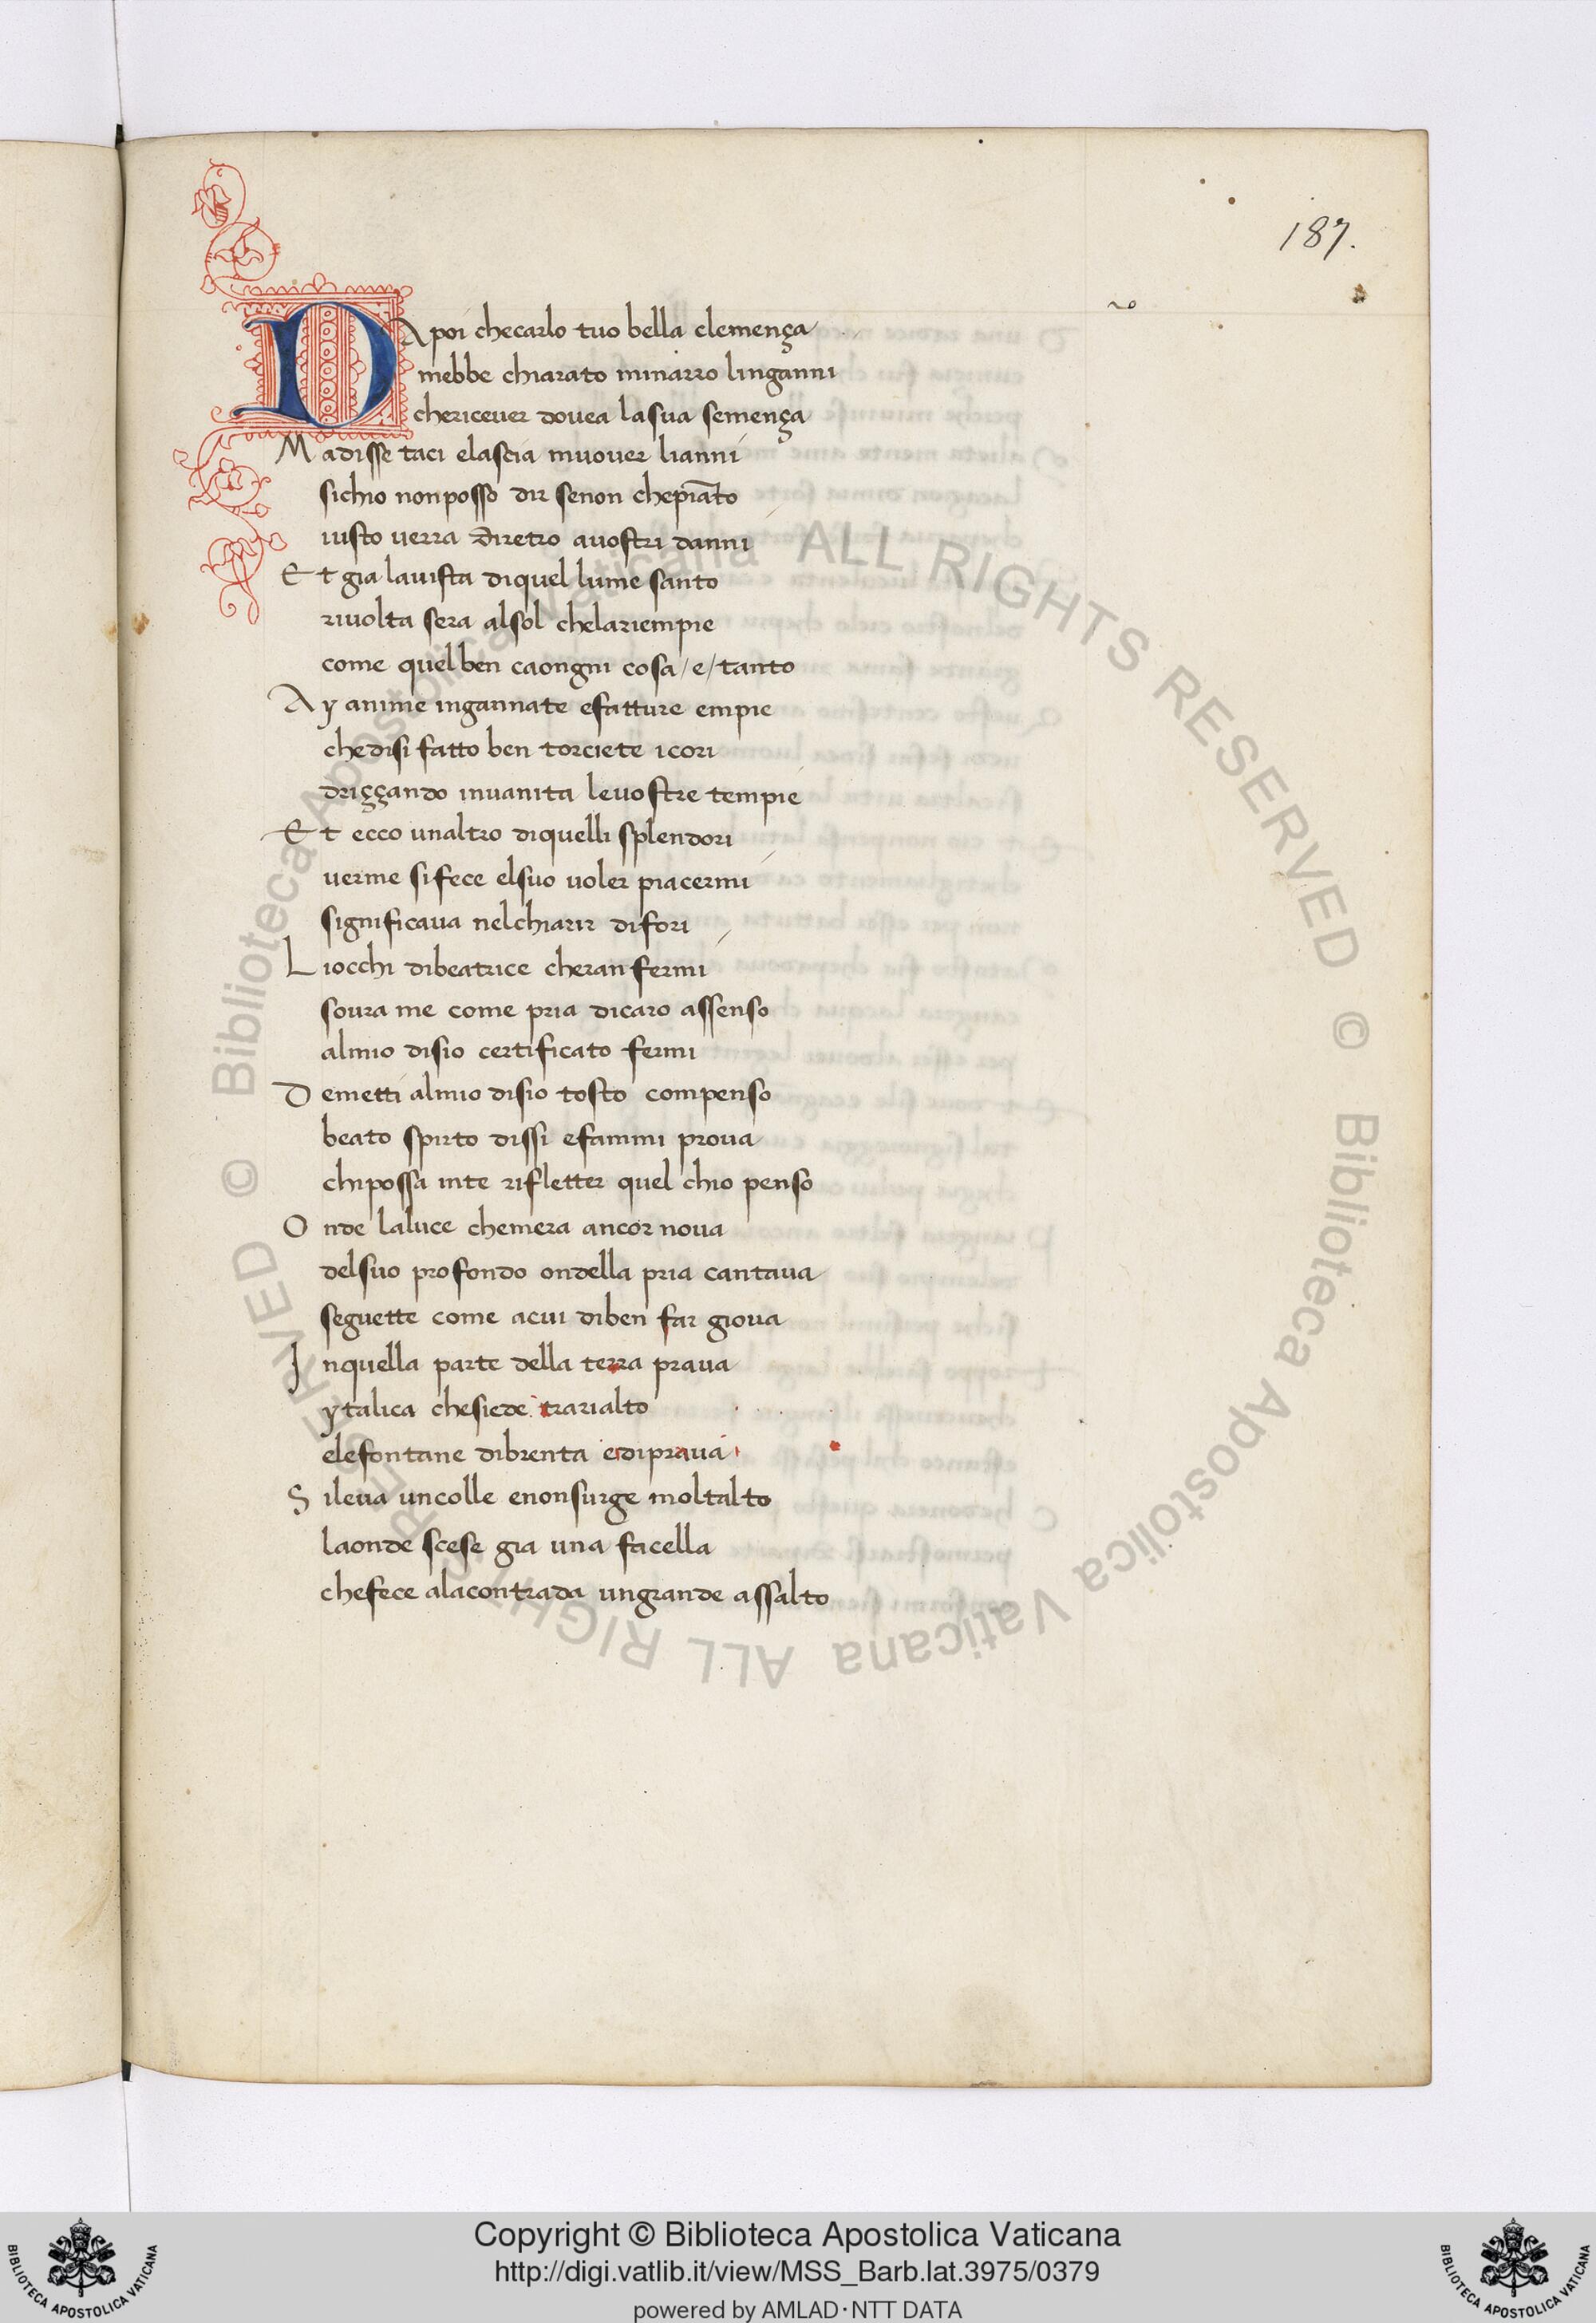 187.
DApoi checarlo tuo bella clemença
mebbe chiarato minarro linganni
chericever dovea lasva semença
Madisse taci elascia muover lianni
sichio nonposso dir senon chepianto
iusto verra diretro avostri danni
Et gia lavista diquel lume santo
rivolta sera alsol chelariempie
come quel ben caongni cosa/e/tanto
Ay anime ingannate efatture empie
chedisi fatto ben torciete icori
driççando invanita levostre tempie
Et ecco unaltro diquelli splendori
verme sifece elsuo voler piacermi
significava nelchiarir difori
Liocchi dibeatrice cheran fermi
sovra me come pria dicaro assenso
almio disio certificato fermi
Demetti almio disio tosto compenso
beato spirto dissi efammi prova
chipossa inte rifletter quel chio penso
Onde laluce chemera ancor nova
delsuo profondo ondella pria cantava
seguette come acui diben far giova
Inquella parte della terra prava
ytalica chesiede trarialto
elefontane dibrenta ediprava
Sileva uncolle enonsurge moltalto
laonde scese gia una facella
chefece alacontrada ungrande assalto
© Biblioteca Apostolica Vaticana ALL RIGHTS RESERVED © Biblioteca Apostolica Vaticana ALL RIGHTS RESERVED
Copyright © Biblioteca Apostolica Vaticana
http://digi.vatlib.it/view/MSS_Barb.lat.3975/0379
powered by AMLAD·NTT DATA
BIBLIOTECA APOSTOLICA VATICANA
BIBLIOTECA APOSTOLICA VATICANA